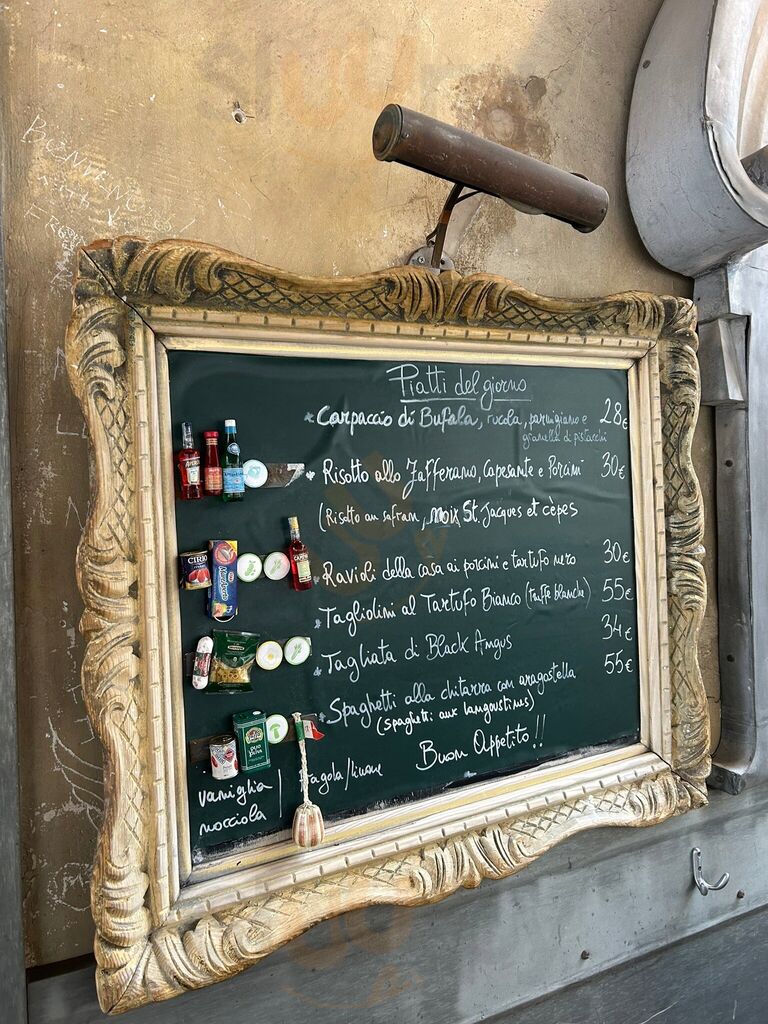 Piatti del giorno
*Carpaccio di Bufala, rucola, parmigiano e 28€
granella di pistacchi
* Risotto allo Zafferano, Capesante e Porcini 30€
(Risotto au safran, noix St. Jacques et cèpes
* Ravioli della casa ai porcini e tartufo nero 30€
* Tagliolini al Tartufo Bianco (truffe blanche) 55€
* Tagliata di Black Angus 34€
* Spaghetti alla chitarra con aragostella 55€
(spaghetti aux langoustines)
Buon Appetito!!
vaniglia / fragola/limone
nocciola
APEROL
CIRIO
CAMPARI
BONTANC